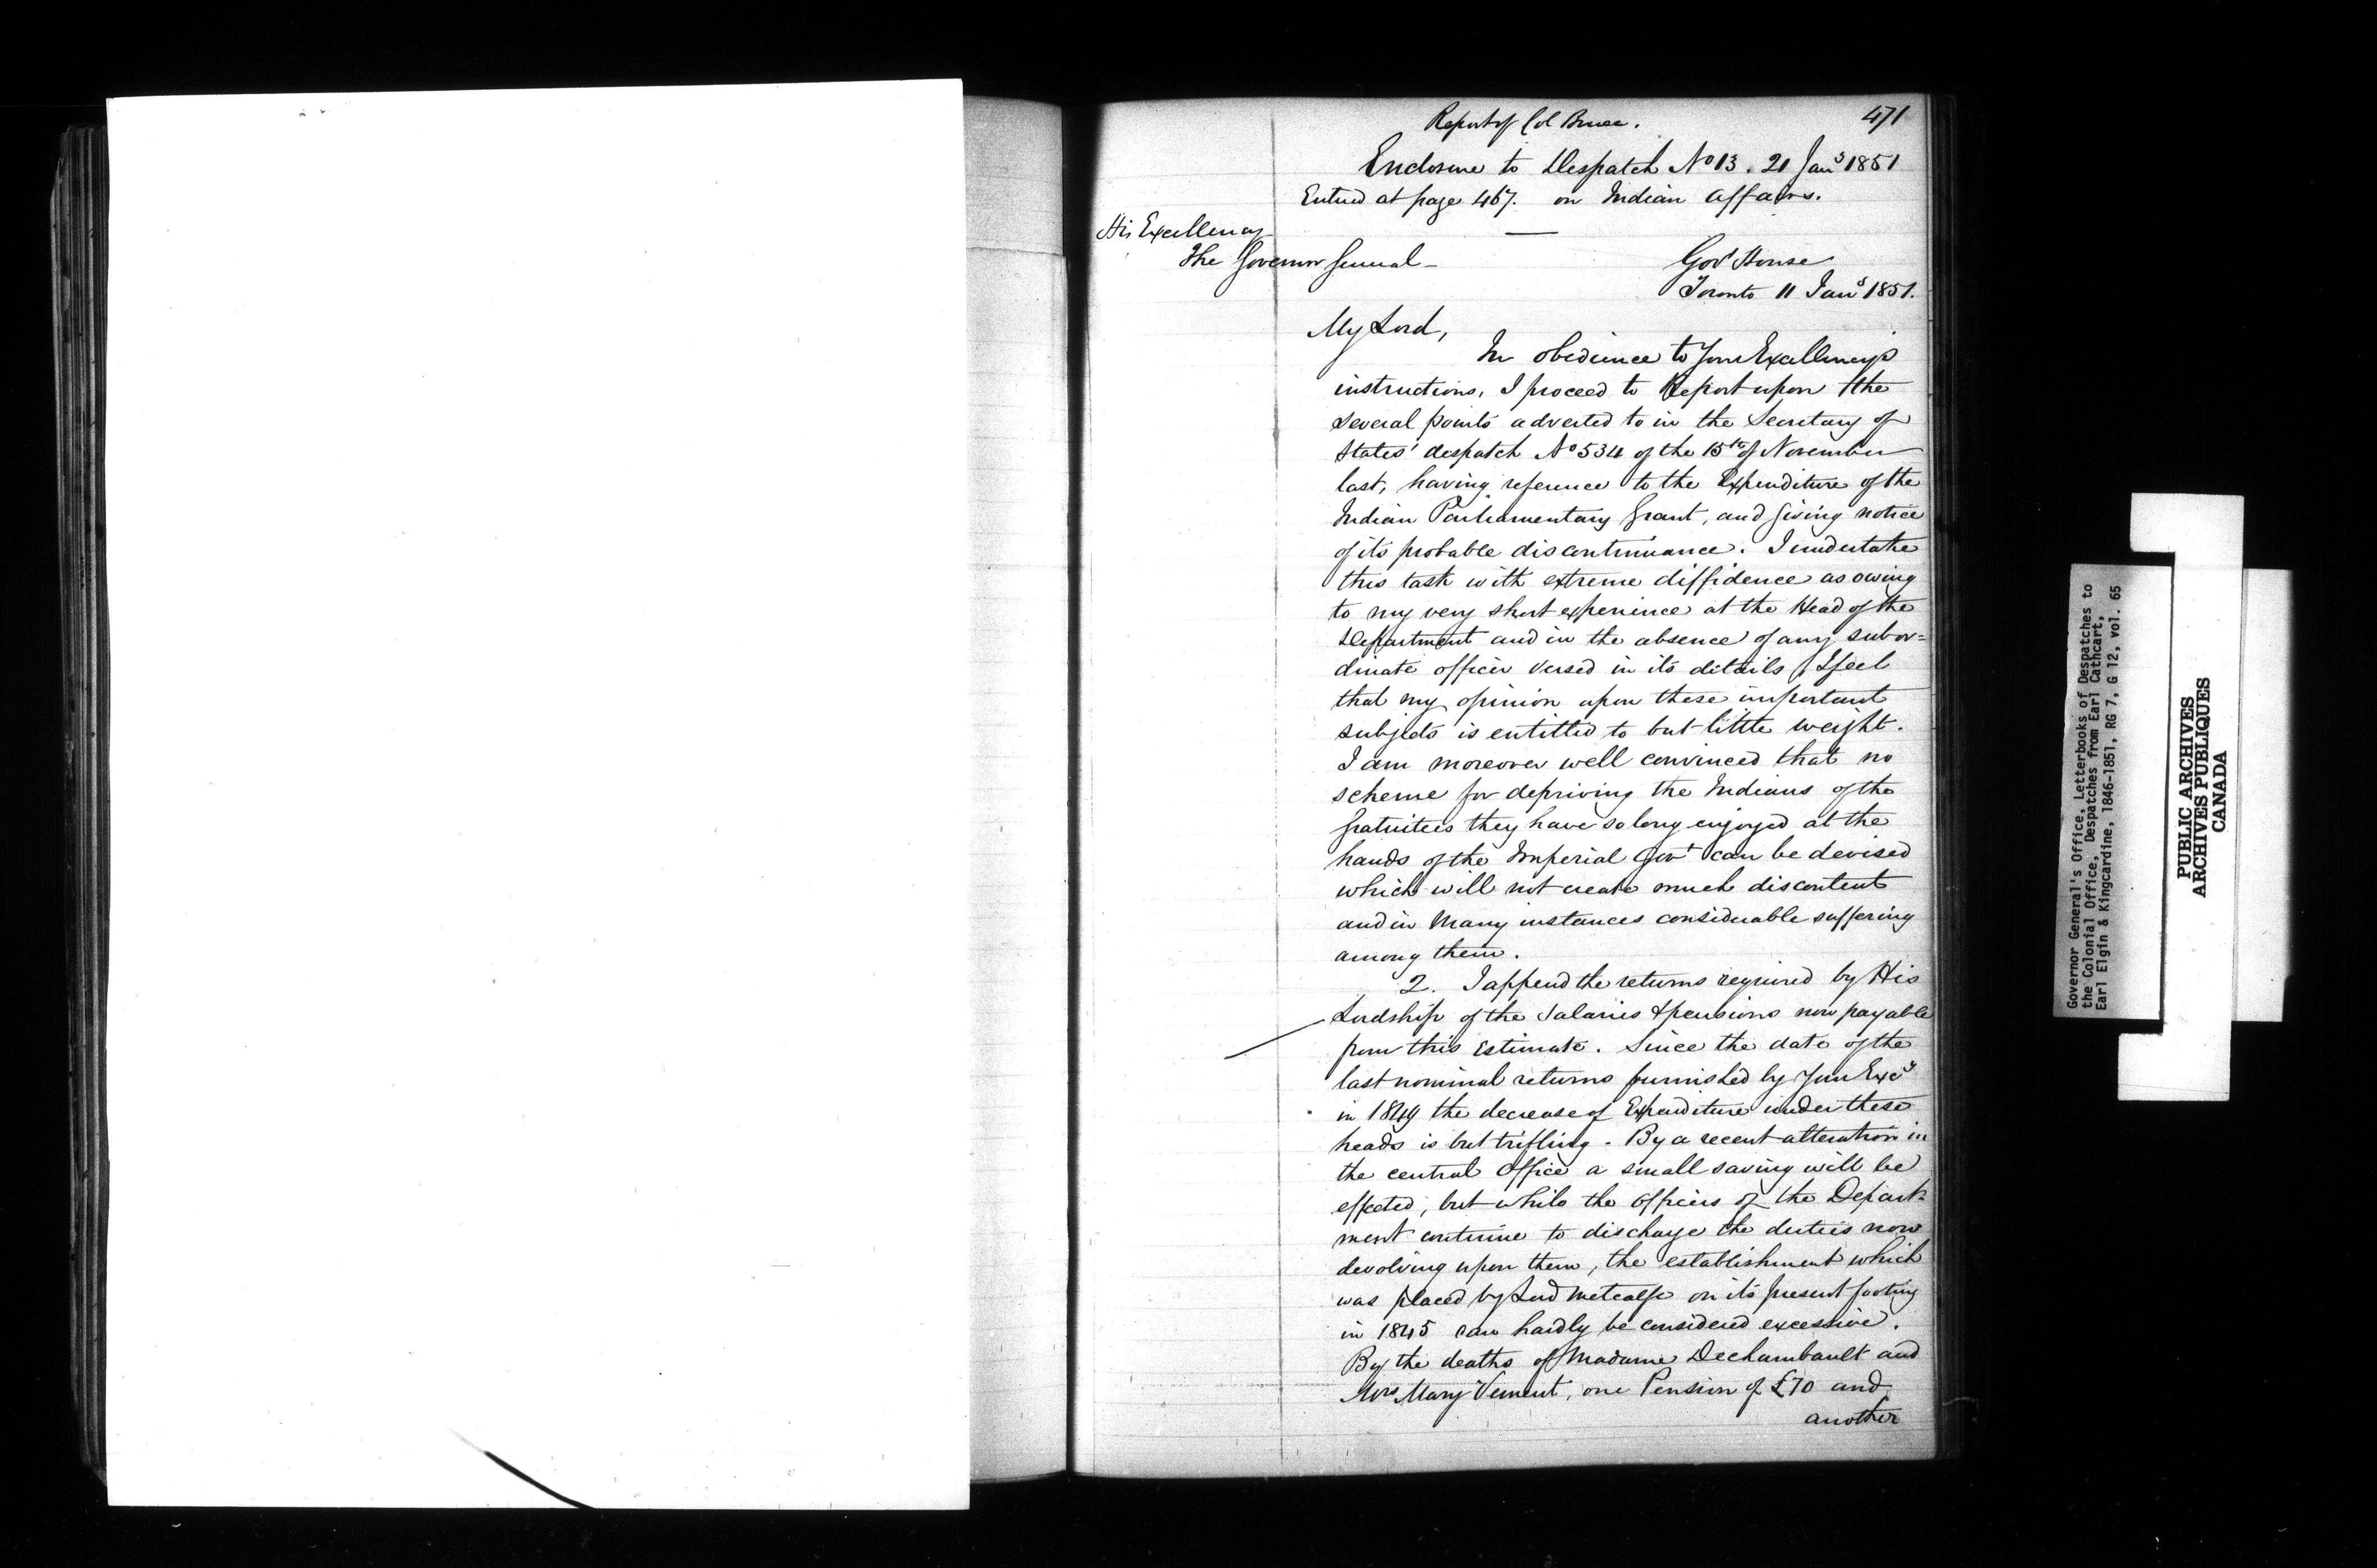 471
Report of Col Bruce.
Enclosure to Despatch No 13. 21 Jany 1851
Entered at page 467. on Indian Affairs.
His Excellency
The Governor General
Govt House
Toronto 11 Jany 1851.
My Lord,
In obedience to Your Excellency's
instructions, I proceed to Report upon the
several points adverted to in the Secretary of
States' despatch No 534 of the 15th of November
last, having reference to the Expenditure of the
Indian Parliamentary Grant, and giving notice
of its probable discontinuance. I undertake
this task with extreme diffidence as owing
to my very short experience at the Head of the
Department and in the absence of any subor=
dinate officer versed in its details, I feel
that my opinion upon these important
subjects is entitled to but little weight.
I am moreover well convinced that no
scheme for depriving the Indians of the
gratuities they have so long enjoyed at the
hands of the Imperial Govt can be devised
which will not create much discontent
and in many instances considerable suffering
among them.
2. I append the returns required by His
Lordship of the Salaries & pensions now payable
from this Estimate. Since the date of the
last nominal returns furnished by Your Excy
in 1849 the decrease of Expenditure under these
heads is but trifling. By a recent alteration in
the central Office a small saving will be
effected, but while the Officers of the Depart-
ment continue to discharge the duties now
devolving upon them, the establishment which
was placed by Lord Metcalfe on its present footing
in 1845 can hardly be considered excessive.
By the deaths of Madame Dechambault and
Mrs Mary Vement, one Pension of £70 and
another
Governor General's Office, Letterbooks of Despatches to
the Colonial Office, Despatches from Earl Cathcart,
Earl Elgin & Kingcardine, 1846-1851, RG 7, G 12, vol. 65
PUBLIC ARCHIVES
ARCHIVES PUBLIQUES
CANADA